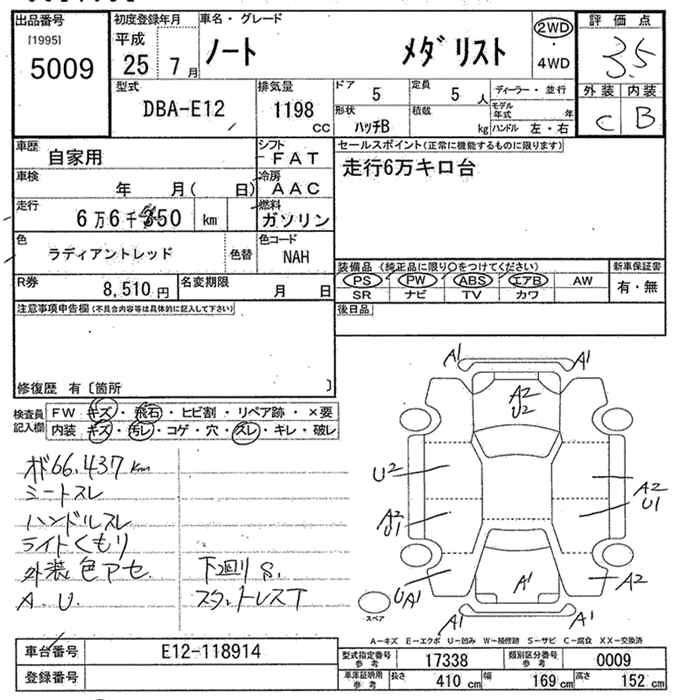 出品番号
[1995]
5009
初度登録年月
平成
25 7月
車名・グレード
ノート メダリスト
2WD
・
4WD
評価点
3.5
外装 内装
C B
型式
DBA-E12
排気量
1198
cc
ドア 5
定員 5 人
形状
ハッチB
積載
kg
ディーラー・並行
モデル年式 年
ハンドル 左・右
車歴
自家用
シフト
FAT
車検
年 月( 日)
冷房
AAC
走行
6万6千 50 km
燃料
ガソリン
色
ラディアントレッド
色替
色コード
NAH
R券
8,510円
名変期限
月 日
セールスポイント(正常に機能するものに限ります)
走行6万キロ台
装備品(純正品に限り○をつけてください)
PS PW ABS エアB AW
SR ナビ TV カワ
新車保証書
有・無
後日品
注意事項申告欄(不具合内容等は具体的に記入して下さい)
修復歴 有〔箇所 〕
検査員
記入欄
FW キズ・飛石・ヒビ割・リペア跡・×要
内装 キズ・汚レ・コゲ・穴・スレ・キレ・破レ
66,437Km
シートスレ
ハンドルスレ
ライトくもり
外装色アセ.
A.U.
下回りS.
スタットレスT
A1 A1
A2
U2
U2
A2
U1
A2
U1
UA1
A1
A2
A1 A1
スペア
A-キズ E-エクボ U-凹み W-補修跡 S-サビ C-腐食 XX-交換済
車台番号
E12-118914
登録番号
型式指定番号
参考
17338
類別区分番号
参考
0009
車庫証明用
参考
長さ 410 cm
幅 169 cm
高さ 152 cm